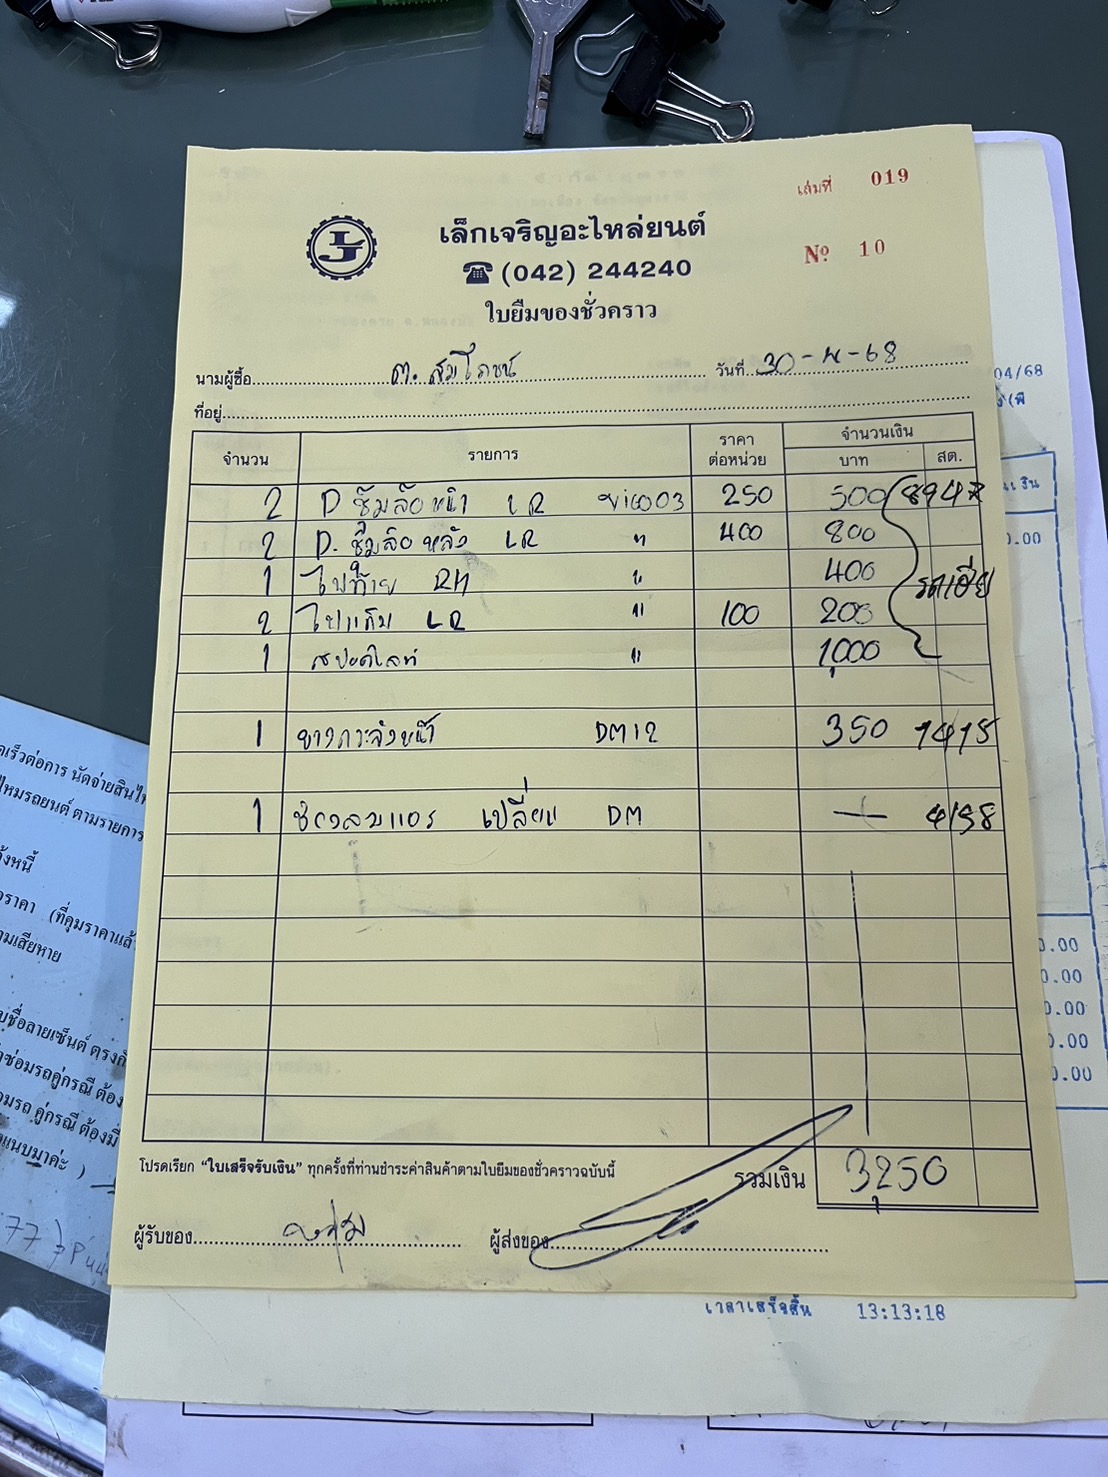 เล่มที่ 019
LJ
เล็กเจริญอะไหล่ยนต์
Nº 10
☎ (042) 244240
ใบยืมของชั่วคราว
นามผู้ซื้อ ต. สมโภชน์ วันที่ 30-4-68
ที่อยู่
จำนวน รายการ ราคาต่อหน่วย จำนวนเงิน
บาท สต.
2 D ซุ้มล้อหน้า LR vigo03 250 500
2 D. ซุ้มล้อหลัง LR " 400 800
1 ไฟท้าย RH " 400
2 ไฟแก้ม LR " 100 200
1 สปอตไลท์ " 1,000
1 ยางกระจังหน้า DM12 350 1415
1 ช่องลมแอร์ เปลี่ยน DM — 4198
โปรดเรียก "ใบเสร็จรับเงิน" ทุกครั้งที่ท่านชำระค่าสินค้าตามใบยืมของชั่วคราวฉบับนี้
รวมเงิน 3,250
ผู้รับของ
ผู้ส่งของ
เวลาเสร็จสิ้น 13:13:18
04/68
0.00
0.00
0.00
0.00
0.00
0.00